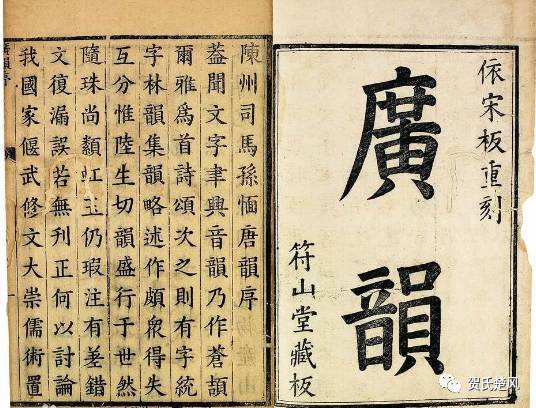 依宋板重刻
廣韻
符山堂藏板
陳州司馬孫愐唐韻序
葢聞文字聿興音韻乃作蒼頡
爾雅爲首詩頌次之則有字統
字林韻集韻略述作頗衆得失
互分惟陸生切韻盛行于世然
隨珠尚纇虹玉仍瑕注有差錯
文復漏誤若無刊正何以討論
我國家偃武修文大崇儒術置
廣韻序
贺氏楚风